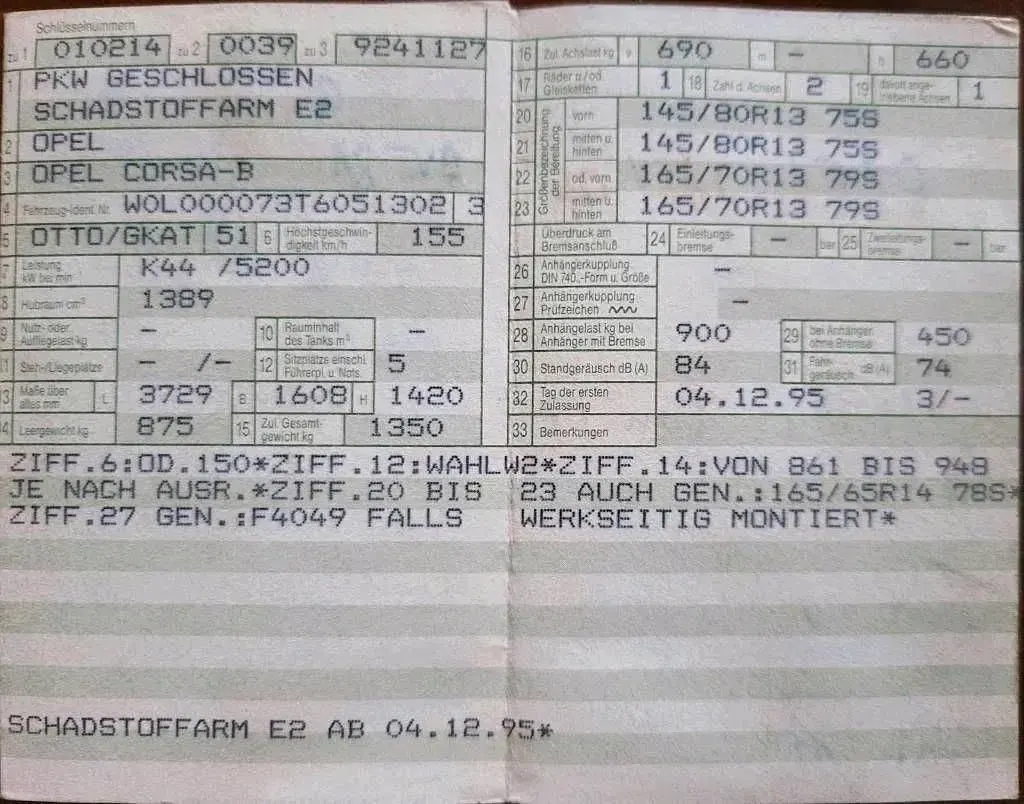 Schlüsselnummern
zu 1 010214 zu 2 0039 zu 3 9241127
1 PKW GESCHLOSSEN
SCHADSTOFFARM E2
2 OPEL
3 OPEL CORSA-B
4 Fahrzeug-Ident. Nr. W0L000073T6051302 3
5 OTTO/GKAT 51 6 Höchstgeschwin-
digkeit km/h 155
7 Leistung
kW bei min K44 /5200
8 Hubraum cm³ 1389
9 Nutz- oder
Aufliegelast kg – 10 Rauminhalt
des Tanks m³ –
11 Steh-/Liegeplätze – /– 12 Sitzplätze einschl.
Führerpl. u. Nots. 5
13 Maße über
alles mm L 3729 B 1608 H 1420
14 Leergewicht kg 875 15 Zul. Gesamt-
gewicht kg 1350
16 Zul. Achslast kg v 690 m – h 660
17 Räder u./od.
Gleisketten 1 18 Zahl d. Achsen 2 19 davon ange-
triebene Achsen 1
Größenbezeichnung
der Bereifung
20 vorn 145/80R13 75S
21 mitten u.
hinten 145/80R13 75S
22 od. vorn 165/70R13 79S
23 mitten u.
hinten 165/70R13 79S
Überdruck am
Bremsanschluß 24 Einleitungs-
bremse – bar 25 Zweileitungs-
bremse – bar
26 Anhängerkupplung
DIN 740.-Form u. Größe –
27 Anhängerkupplung
Prüfzeichen –
28 Anhängelast kg bei
Anhänger mit Bremse 900 29 bei Anhänger
ohne Bremse 450
30 Standgeräusch dB (A) 84 31 Fahr-
geräusch dB (A) 74
32 Tag der ersten
Zulassung 04.12.95 3/–
33 Bemerkungen
ZIFF.6:OD.150*ZIFF.12:WAHLW2*ZIFF.14:VON 861 BIS 948
JE NACH AUSR.*ZIFF.20 BIS 23 AUCH GEN.:165/65R14 78S*
ZIFF.27 GEN.:F4049 FALLS WERKSEITIG MONTIERT*
SCHADSTOFFARM E2 AB 04.12.95*